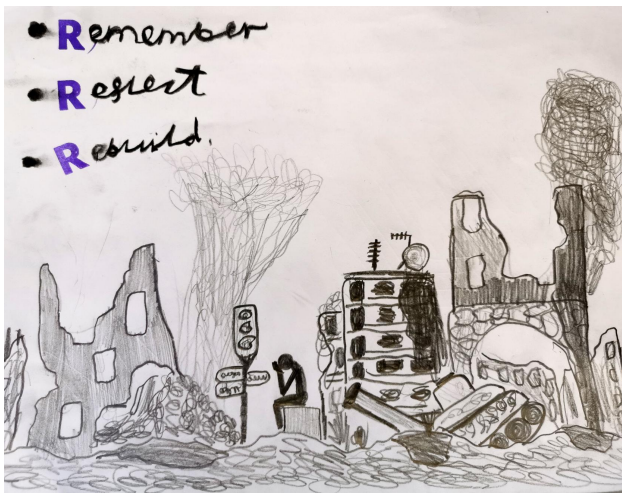 Remember
Reflect
Rebuild.